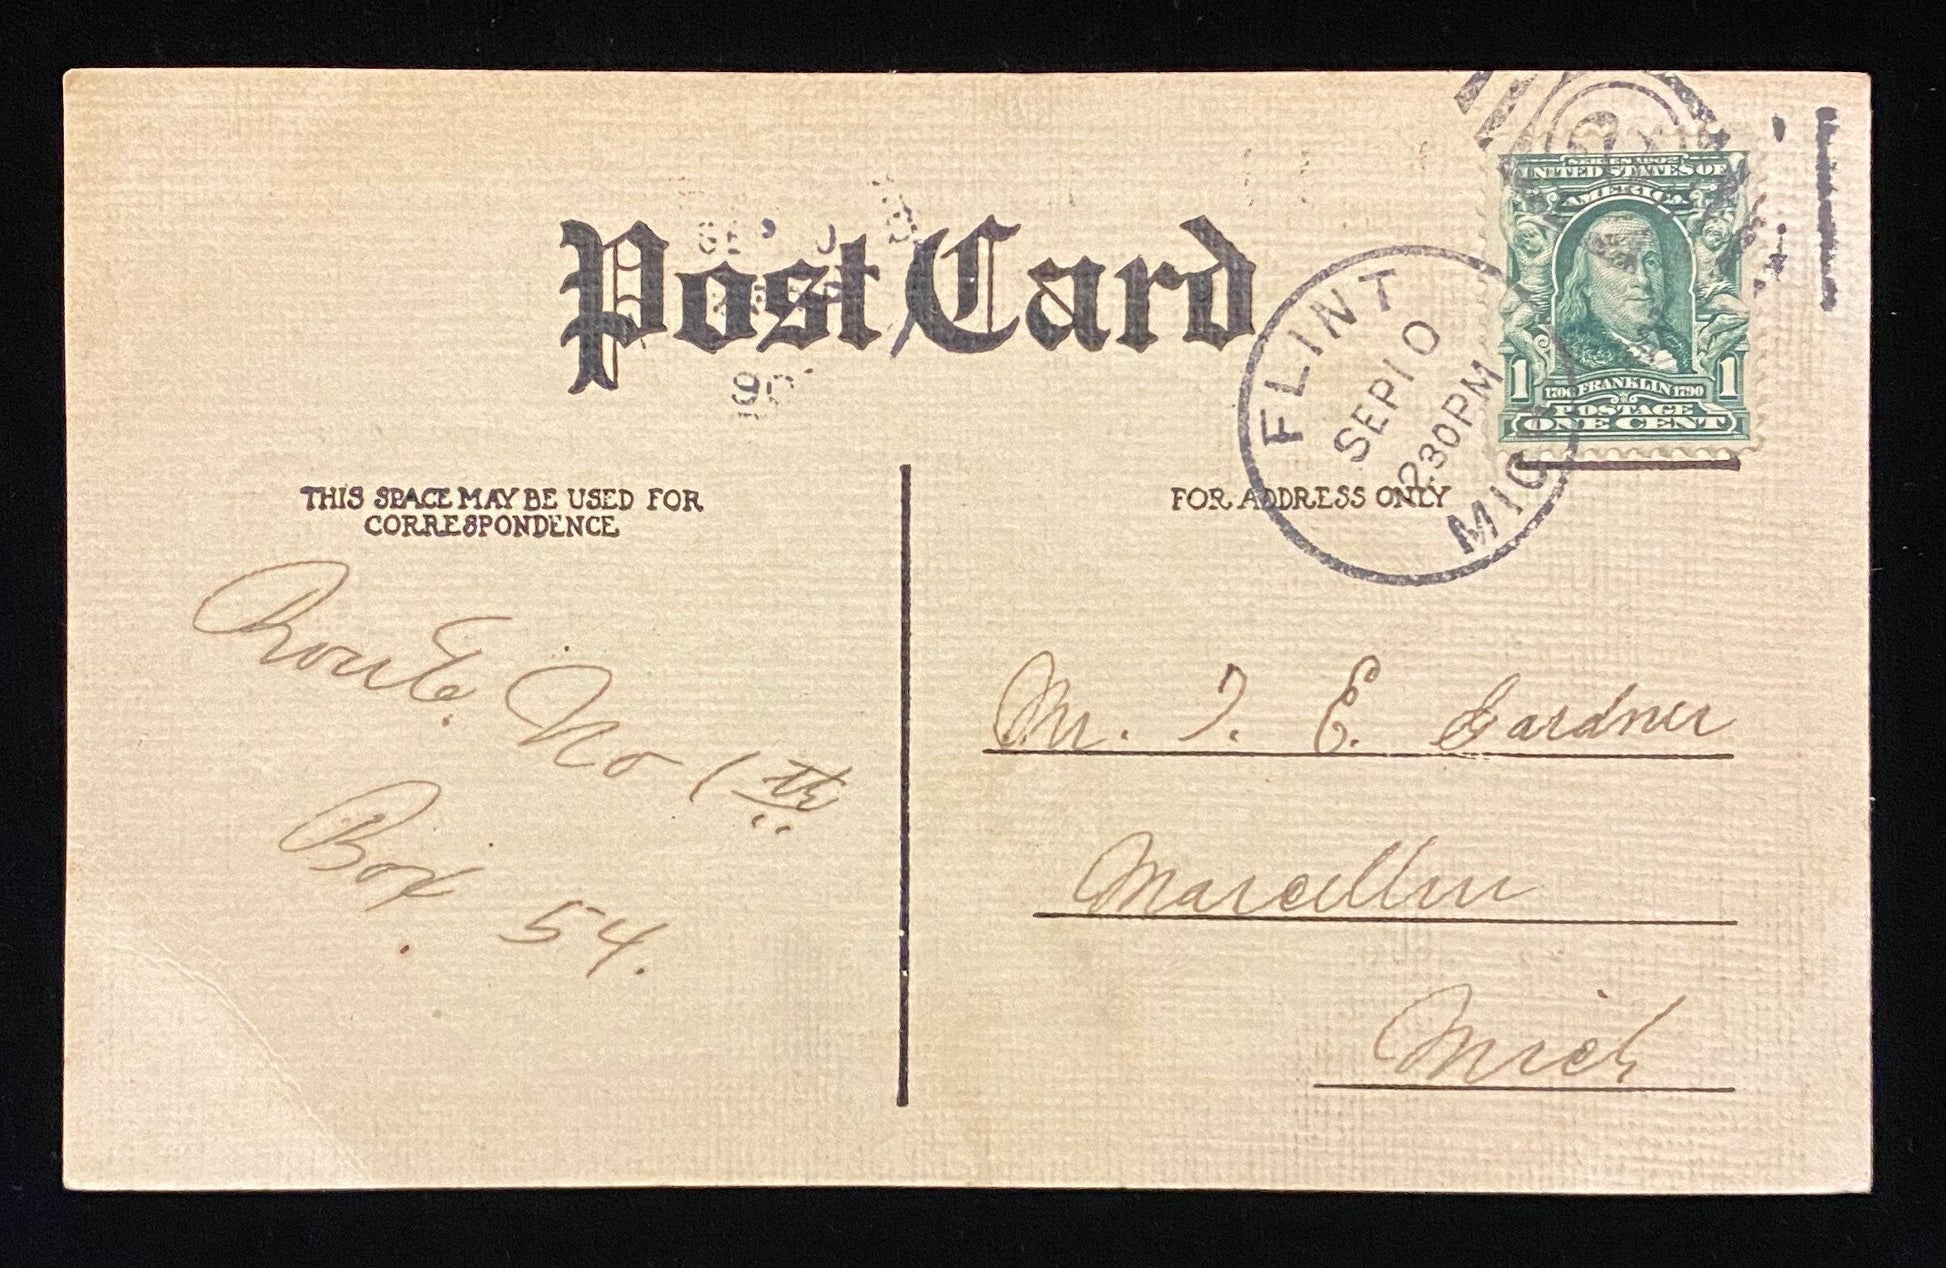 Post Card
THIS SPACE MAY BE USED FOR
CORRESPONDENCE
Route No 1th
Box 54.
FOR ADDRESS ONLY
FLINT
SEP 10
230PM
MICH
SERIES 1902
UNITED STATES OF
AMERICA
1 1706 FRANKLIN 1790 1
POSTAGE
ONE CENT
Mr. T. E. Gardner
Marcellus
Mich